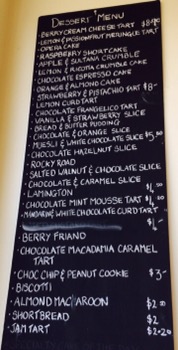 DESSERT MENU
· BERRY CREAM CHEESE TART $8.90
· LEMON & PASSIONFRUIT MERINGUE TART
· OPERA CAKE
· RASPBERRY SHORTCAKE
· APPLE & SULTANA CRUMBLE
· LEMON & RICOTTA CRUMBLE CAKE
· CHOCOLATE ESPRESSO CAKE
· ORANGE & ALMOND CAKE
· STRAWBERRY & PISTACHIO TART $8-
· LEMON CURD TART
· CHOCOLATE FRANGELICO TART
· VANILLA & STRAWBERRY SLICE
· BREAD & BUTTER PUDDING
· CHOCOLATE & ORANGE SLICE
· MUESLI & WHITE CHOCOLATE SLICE $5.50
· CHOCOLATE HAZELNUT SLICE
· ROCKY ROAD
· SALTED WALNUT & CHOCOLATE SLICE
· CHOCOLATE & CARAMEL SLICE
· LAMINGTON
· CHOCOLATE MINT MOUSSE TART
· MANDARIN & WHITE CHOCOLATE CURD TART
· BERRY FRIAND
· CHOCOLATE MACADAMIA CARAMEL
TART
· CHOC CHIP & PEANUT COOKIE $3-
· BISCOTTI
· ALMOND MACAROON
· SHORTBREAD $2
· JAM TART $2.20